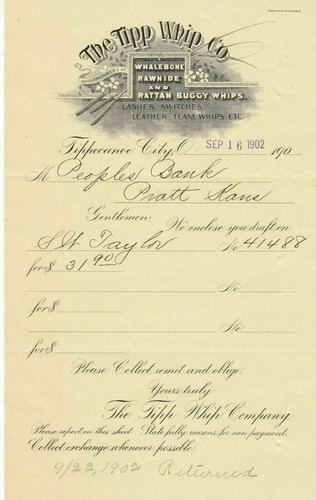 The Tipp Whip Co
MANUFACTURERS OF
WHALEBONE
RAWHIDE
AND
RATTAN BUGGY WHIPS.
LASHES, SWITCHES,
LEATHER TEAM WHIPS ETC.
Tippecanoe City, O. SEP 16 1902 190
M Peoples Bank
Pratt Kans
Gentlemen: We enclose you draft on
Taylor No 41488
for $ 31 90 No
for $ No
for $
Please Collect, remit and oblige.
Yours truly
The Tipp Whip Company.
Please report on this sheet. State fully reasons for non payment.
Collect exchange whenever possible.
9/22, 1902 Returned